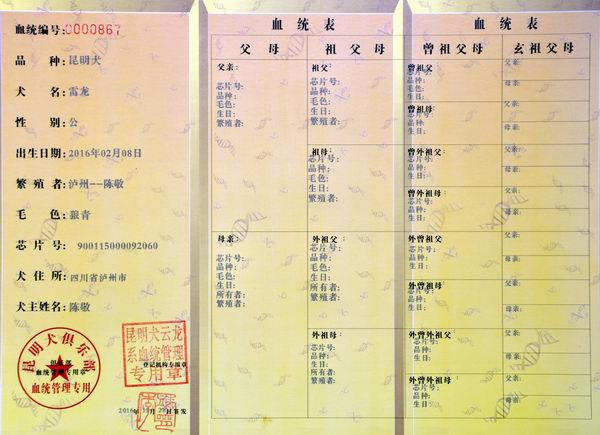 血统编号:0000867
品 种:昆明犬
犬 名:雷龙
性 别:公
出生日期:2016年02月08日
繁 殖 者:泸州--陈敬
毛 色:狼青
芯 片 号: 900115000092060
犬 住 所:四川省泸州市
犬主姓名:陈敬
昆明犬俱乐部
俱乐部
血统管理专用章
血统管理专用
昆明犬云龙
系血统管理
专用章
登记机构专用章
血 统 表
父 母
祖 父 母
父亲:
芯片号:
品种:
毛色:
生日:
繁殖者:
祖父:
芯片号:
品种:
毛色:
生日:
繁殖者:
祖母:
芯片号:
品种:
毛色:
生日:
繁殖者:
母亲:
芯片号:
品种:
毛色:
生日:
所有者:
繁殖者:
外祖父:
芯片号:
品种:
毛色:
生日:
所有者:
繁殖者:
外祖母:
芯片号:
品种:
生日:
所有者:
繁殖者:
血 统 表
曾祖父母
玄祖父母
曾祖父:
芯片号:
品种:
生日:
曾祖母:
芯片号:
品种:
生日:
曾外祖父:
芯片号:
品种:
生日:
曾外祖母:
芯片号:
品种:
生日:
外曾祖父:
芯片号:
品种:
生日:
外曾祖母:
芯片号:
品种:
生日:
外曾外祖父:
芯片号:
品种:
生日:
外曾外祖母:
芯片号:
品种:
生日:
父亲:
母亲:
父亲:
母亲:
父亲:
母亲:
父亲:
母亲:
父亲:
母亲:
父亲:
母亲:
父亲:
母亲:
父亲:
母亲: